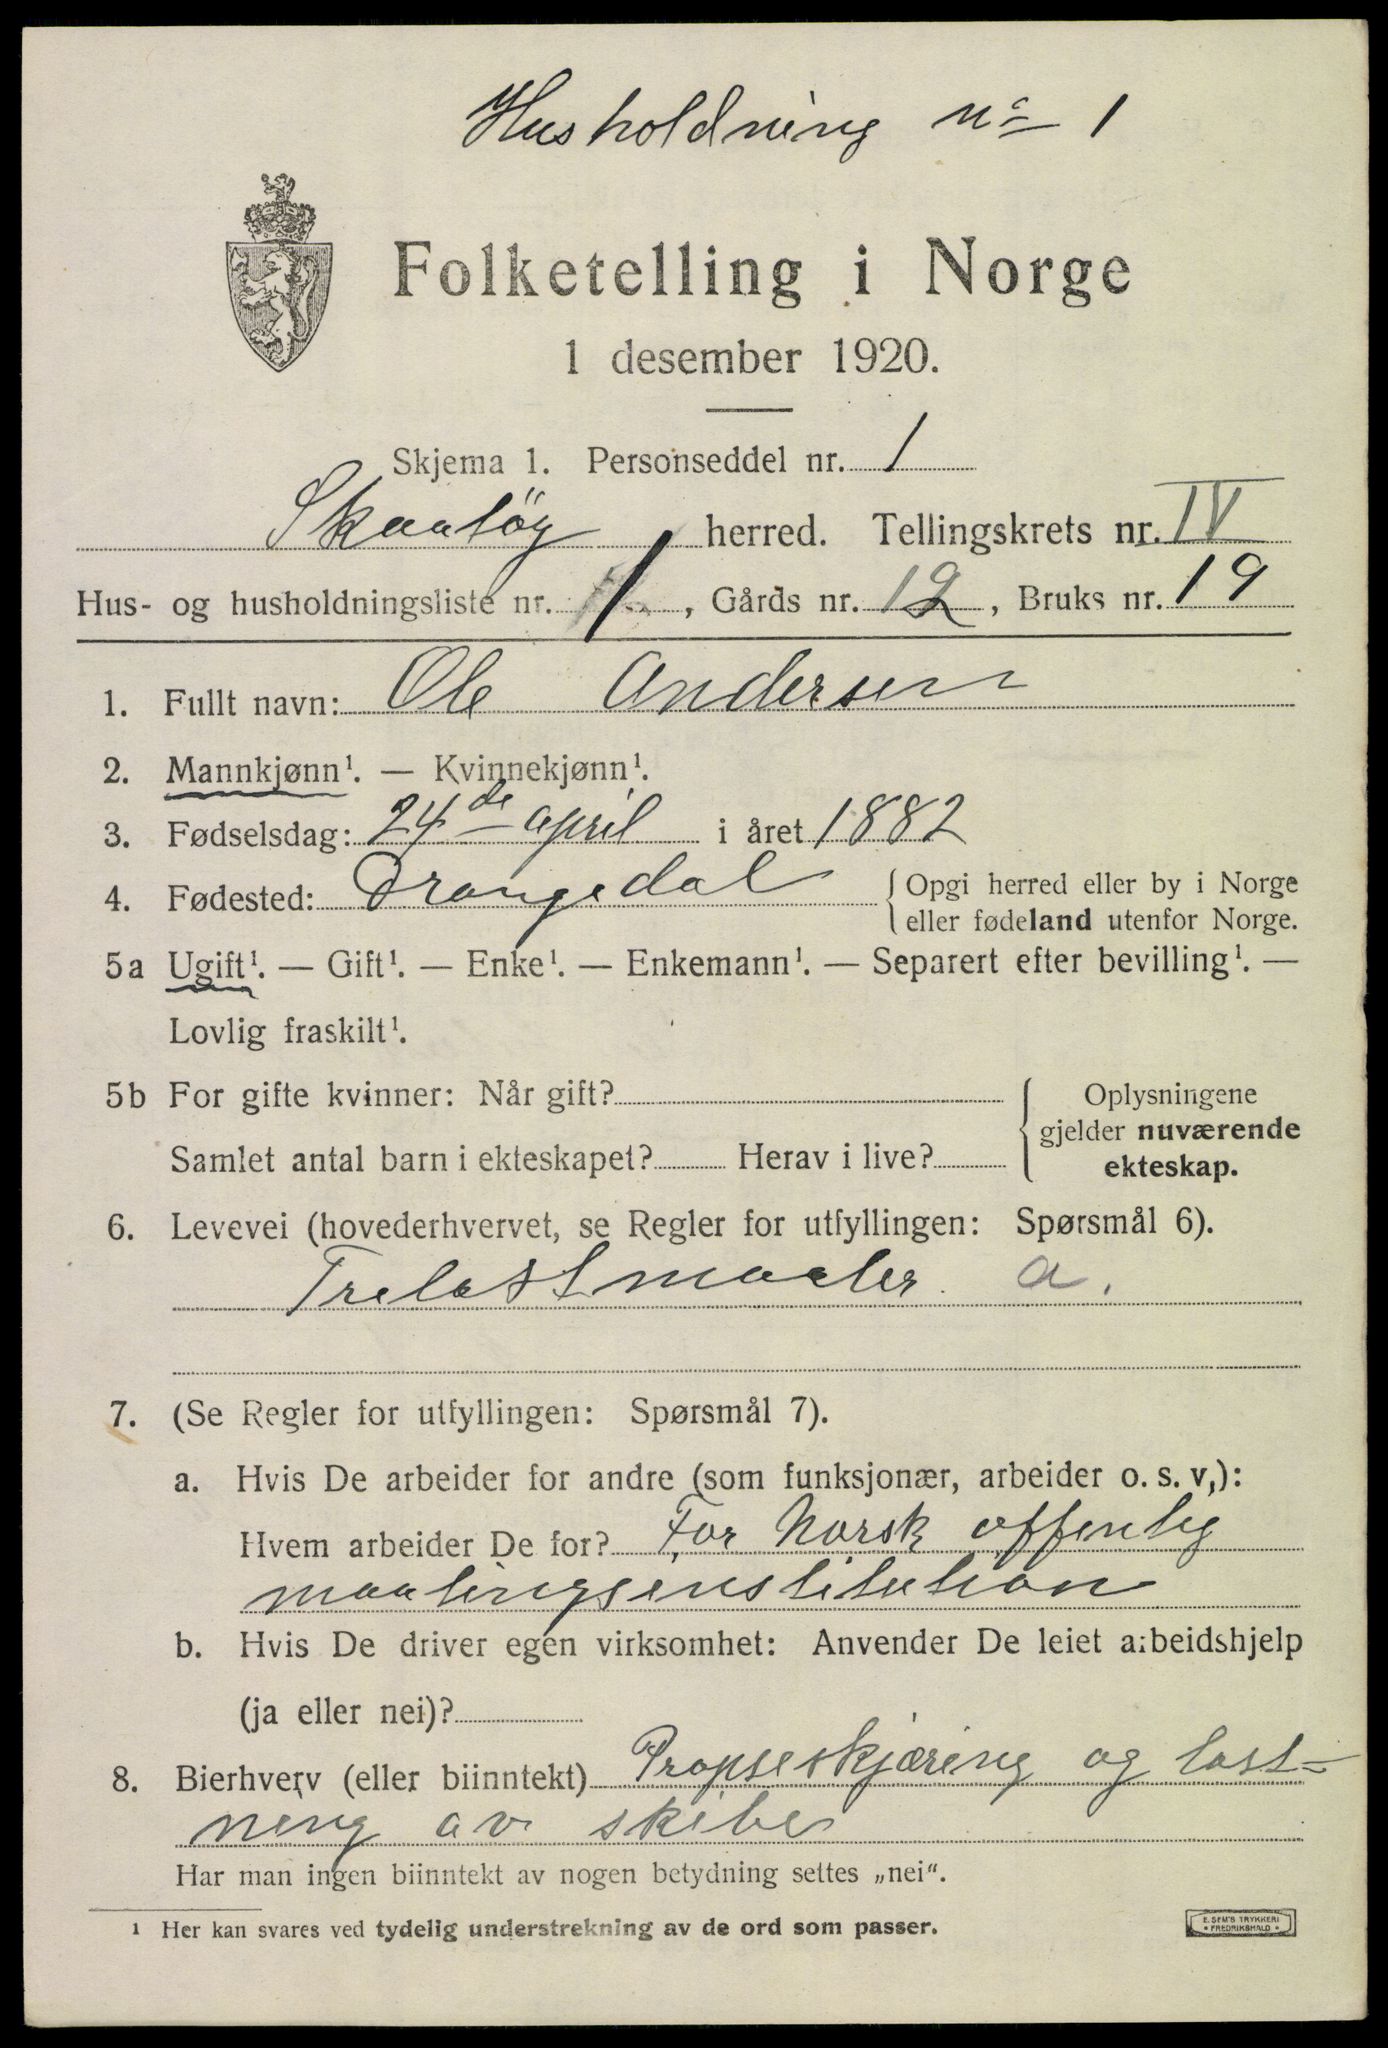 Husholdning no 1
Folketelling i Norge
1 desember 1920.
Skjema 1. Personseddel nr. 1
Skaatöy herred. Tellingskrets nr. IV
Hus- og husholdningsliste nr. 1, Gårds nr. 12, Bruks nr. 19
1. Fullt navn: Ole Andersen
2. Mannkjønn¹. — Kvinnekjønn¹.
3. Fødselsdag: 24de april i året 1882
4. Fødested: Drangedal { Opgi herred eller by i Norge
eller fødeland utenfor Norge.
5a Ugift¹. — Gift¹. — Enke¹. — Enkemann¹. — Separert efter bevilling¹. —
Lovlig fraskilt¹.
5b For gifte kvinner: Når gift? { Oplysningene
gjelder nuværende
Samlet antal barn i ekteskapet? Herav i live? ekteskap.
6. Levevei (hovederhvervet, se Regler for utfyllingen: Spørsmål 6).
Trelastmaaler a.
7. (Se Regler for utfyllingen: Spørsmål 7).
a. Hvis De arbeider for andre (som funksjonær, arbeider o. s. v.):
Hvem arbeider De for? For Norsk offentlig
maalingsinstitution
b. Hvis De driver egen virksomhet: Anvender De leiet arbeidshjelp
(ja eller nei)?
8. Bierhverv (eller biinntekt) Propseskjæring og last-
ning av skibe
Har man ingen biinntekt av nogen betydning settes „nei".
¹ Her kan svares ved tydelig understrekning av de ord som passer.
E. SEM'S TRYKKERI
* FREDRIKSHALD *